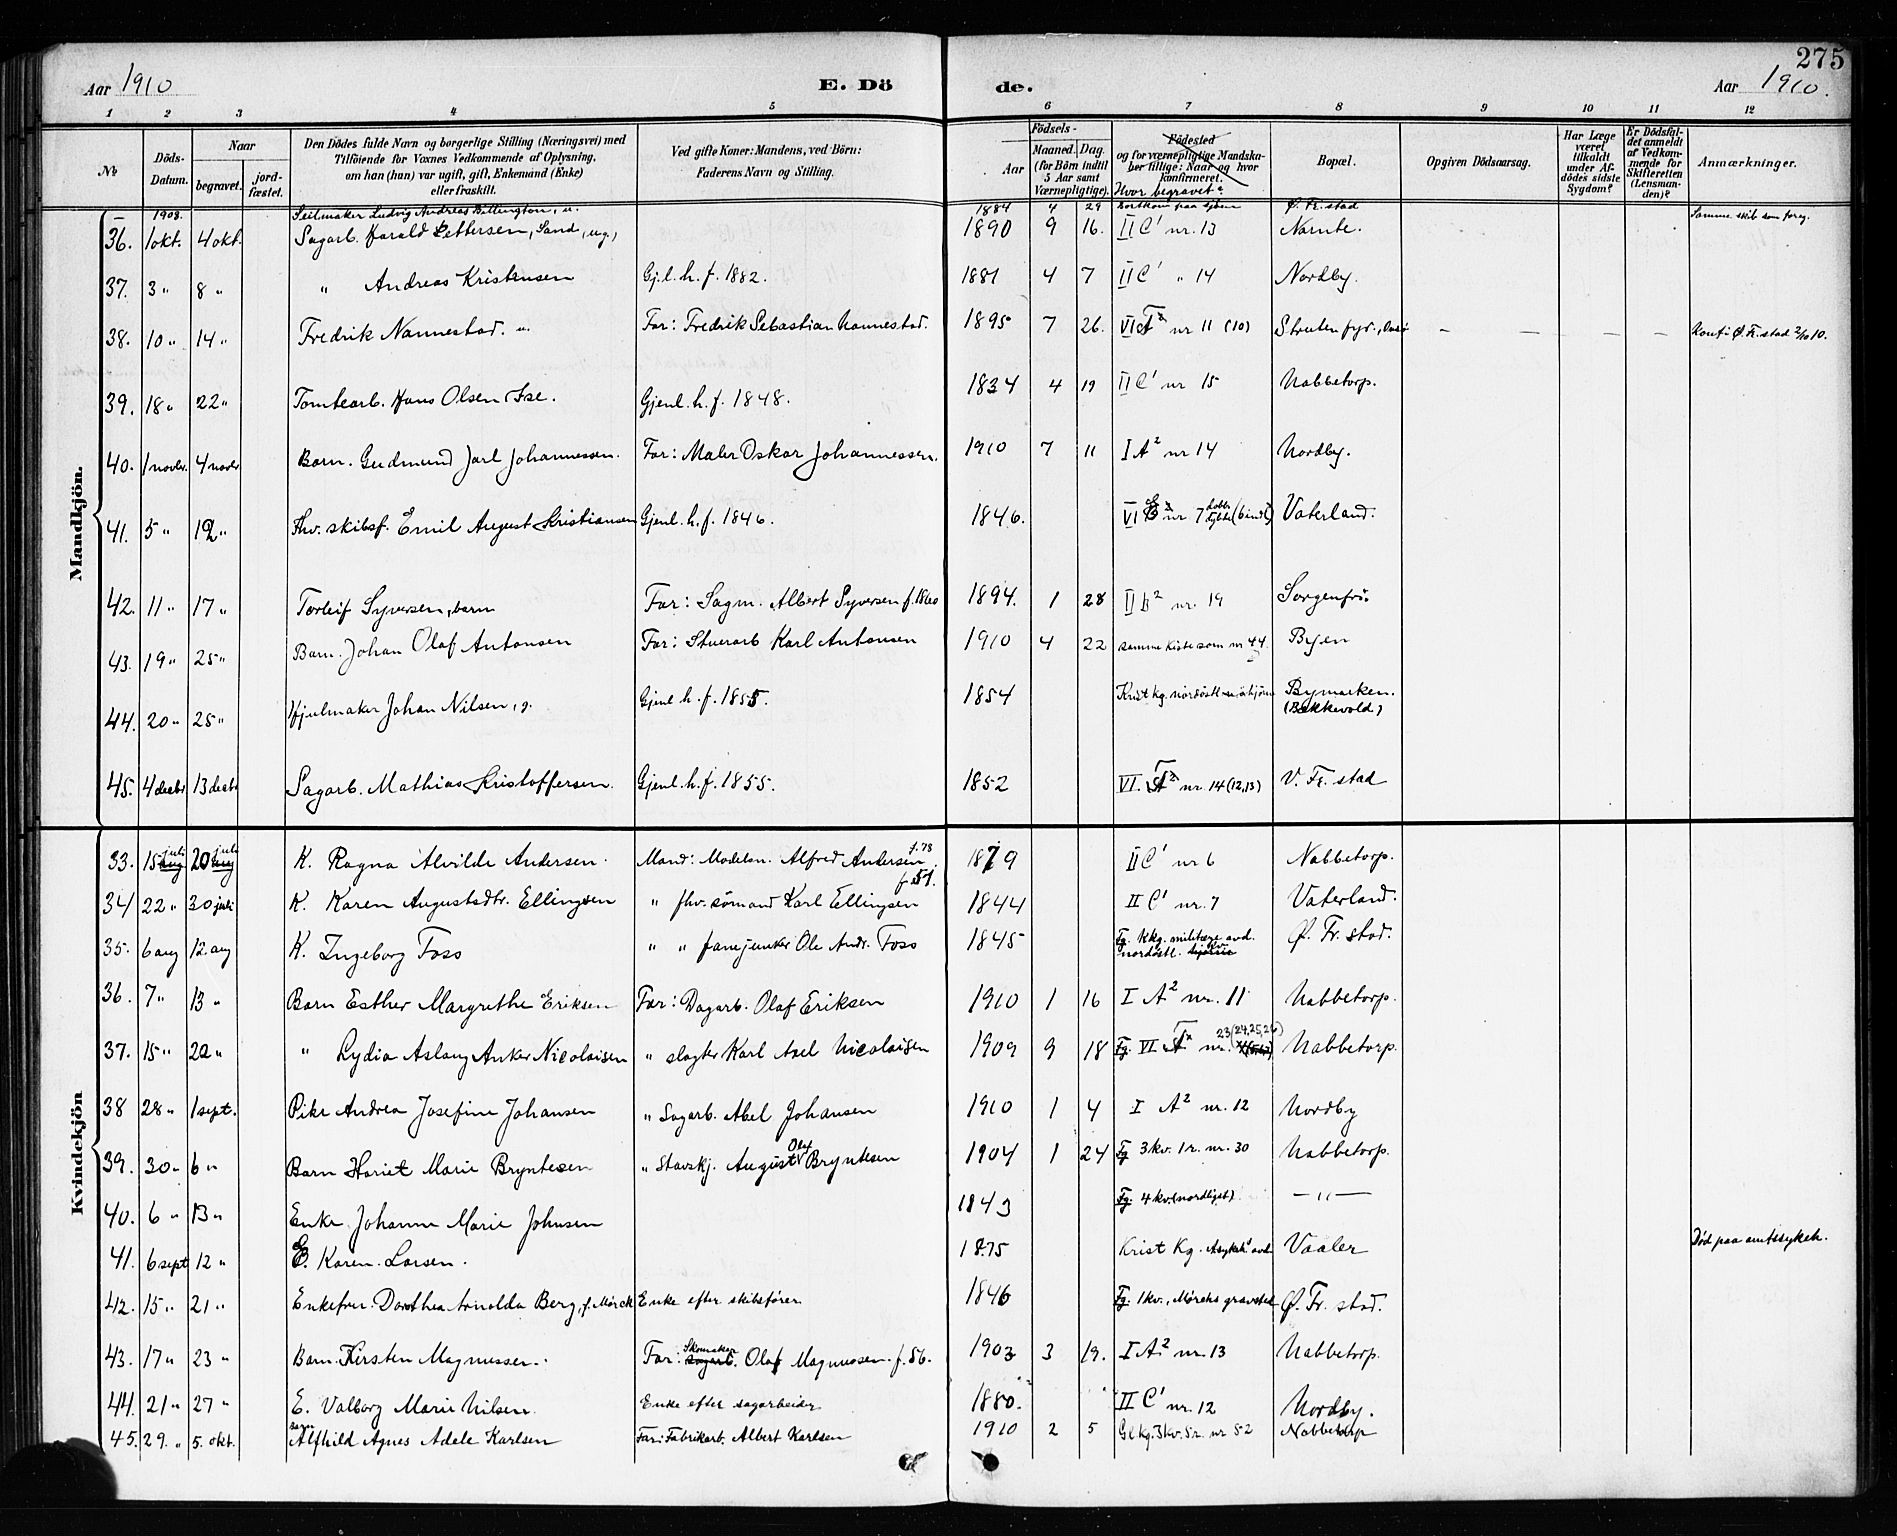 275
Aar 1910
E. Dö de.
Aar 1910.
1 2 3 4 5 6 7 8 9 10 11 12
No
Döds-Datum.
Naar begravet. jord-fæstet.
Den Dödes fulde Navn og borgerlige Stilling (Næringsvei) med Tilföiende for Voxnes Vedkommende af Oplysning, om han (hun) var ugift, gift, Enkemand (Enke) eller fraskilt.
Ved gifte Koner: Mandens, ved Börn: Faderens Navn og Stilling.
Födsels-
Aar Maaned. Dag. (for Börn indtil 5 Aar samt Værnepligtige).
Födested og for værnepligtige Mandska-ber tillige: Naar og hvor konfirmeret.
Hvor begravet?
Bopæl.
Opgiven Dödsaarsag.
Har Læge været tilkaldt under Af-dödes sidste Sygdom?
Er Dödsfal-det anmeldt af Vedkom-mende for Skifteretten (Lensman-den)?
Anmærkninger.
Mandkjön.
– 1908. Seilmaker Ludvig Andreas Billington, u. 1884 4 29 Bortkom paa sjöen Ø. Fr.stad Samme skib som foreg.
36. 1 okt. 4 okt. Sagarb. Harald Pettersen, Sand, ug., 1890 9 16. II C¹ nr. 13 Narnte.
37. 3 " 8 " " Andreas Kristensen Gj.l.h.f. 1882. 1881 4 7 II C¹ " 14 Nordby.
38. 10 " 14 " Fredrik Nannestad. u. Far: Fredrik Sebastian Nannestad. 1895 7 26. VI nr 11 (10) Struten fyr, Onsö – – – – Konf. i Ø. Fr.stad 2/10 10.
39. 18 " 22 " Tomtearb. Hans Olsen Ise. Gjenl.h.f. 1848. 1834 4 19 II C¹ nr 15 Nabbetorp.
40. 1 novbr. 4 novbr Barn. Gudmund Jarl Johannessen. Far: Maler Oskar Johannessen. 1910 7 11 I A² nr 14 Nordby.
41. 5 " 12 " Fhv. skibsf. Emil August Kristiansen Gjenl.h.f. 1846. 1846. VI nr 7 Vaterland.
42. 11 " 17 " Torleif Syversen, barn Far: Sagm. Albert Syversen f. 1860 1894. 1 28 II b² nr. 19 Sorgenfri.
43. 19 " 25 " Barn. Johan Olaf Antonsen Far: Stuerarb Karl Antonsen 1910 4 22 samme kiste som nr 44. Byen
44. 20 " 25 " Hjulmaker Johan Nilsen, g. Gjenl h.f. 1855. 1854 Krist kg. nordöstl. Bymarken. (Bekkevold)
45. 4 decbr 13 decbr Sagarb. Mathias Kristoffersen. Gjenl.h.f. 1855. 1852 VI. nr. 14 (12,13) V. Fr. stad
Kvindekjön
33. 15 juli 20 juli K. Ragna Alvilde Andersen. Mand: Modelsn. Alfred Andersen f. 78 1879 II C¹ nr 6 Nabbetorp.
34 22 " 30 juli K. Karen Augustadtr. Ellingsen " fhv. sömand Karl Ellingsen f. 51. 1844 II C¹ nr. 7 Vaterland.
35. 6 aug 12. aug K. Ingeborg Foss " " fanejunker Ole Andr. Foss 1845 Fg. Kkg. militære avd. nordöstl. kv. Ø. Fr. stad.
36. 7 " 13 " Barn Esther Margrethe Eriksen Far: Dagarb. Olaf Eriksen 1910 1 16 I A² nr. 11 Nabbetorp.
37. 15 " 20 " " Lydia Aslaug Anker Nicolaisen " slagter Karl Axel Nicolaisen 1909 9 18 Fg. VI nr. 23 (24,25,26) Nabbetorp.
38 28 " 1 sept. Pike Andrea Josefine Johansen " Sagarb. Abel Johansen 1910 1 4 I A² nr. 12 Nordby
39. 30 " 6 " Barn Hariet Marie Bryntesen " Stavskj. August Olaf Bryntesen 1904 1 24 Fg 3 kv. 1 r. nr. 30 Nabbetorp.
40. 6 " 13 " Enke Johanne Marie Johnsen 1843 Fg. 4 kv. (nordligst) – " –
41. 6 sept 12 " E. Karen Larsen. 1875 Krist Kg. Asykeh. avd Vaaler Död paa amtssykeh.
42. 15 " 21 " Enkefru. Dorothea Arnolda Berg, f. Mörck Enke efter skibsförer 1846 Fg. 1 kv., Mörchs gravsted Ø. Fr. stad.
43. 17 " 23 " Barn. Kirsten Magnussen. Far: Skomaker sagarb. Olaf Magnussen f. 86. 1903 3 19. I A² nr. 13 Nabbetorp.
44. 21 " 27 " E. Valborg Marie Nilsen Enke efter sagarbeider 1880. II C¹ nr. 12 Nordby.
45. 29. " 5. okt. Barn Alfhild Agnes Adele Karlsen Far: Fabrikarb. Albert Karlsen 1910 2 5 Gl kg. 3 kv. 5 r. nr 52 Nabbetorp